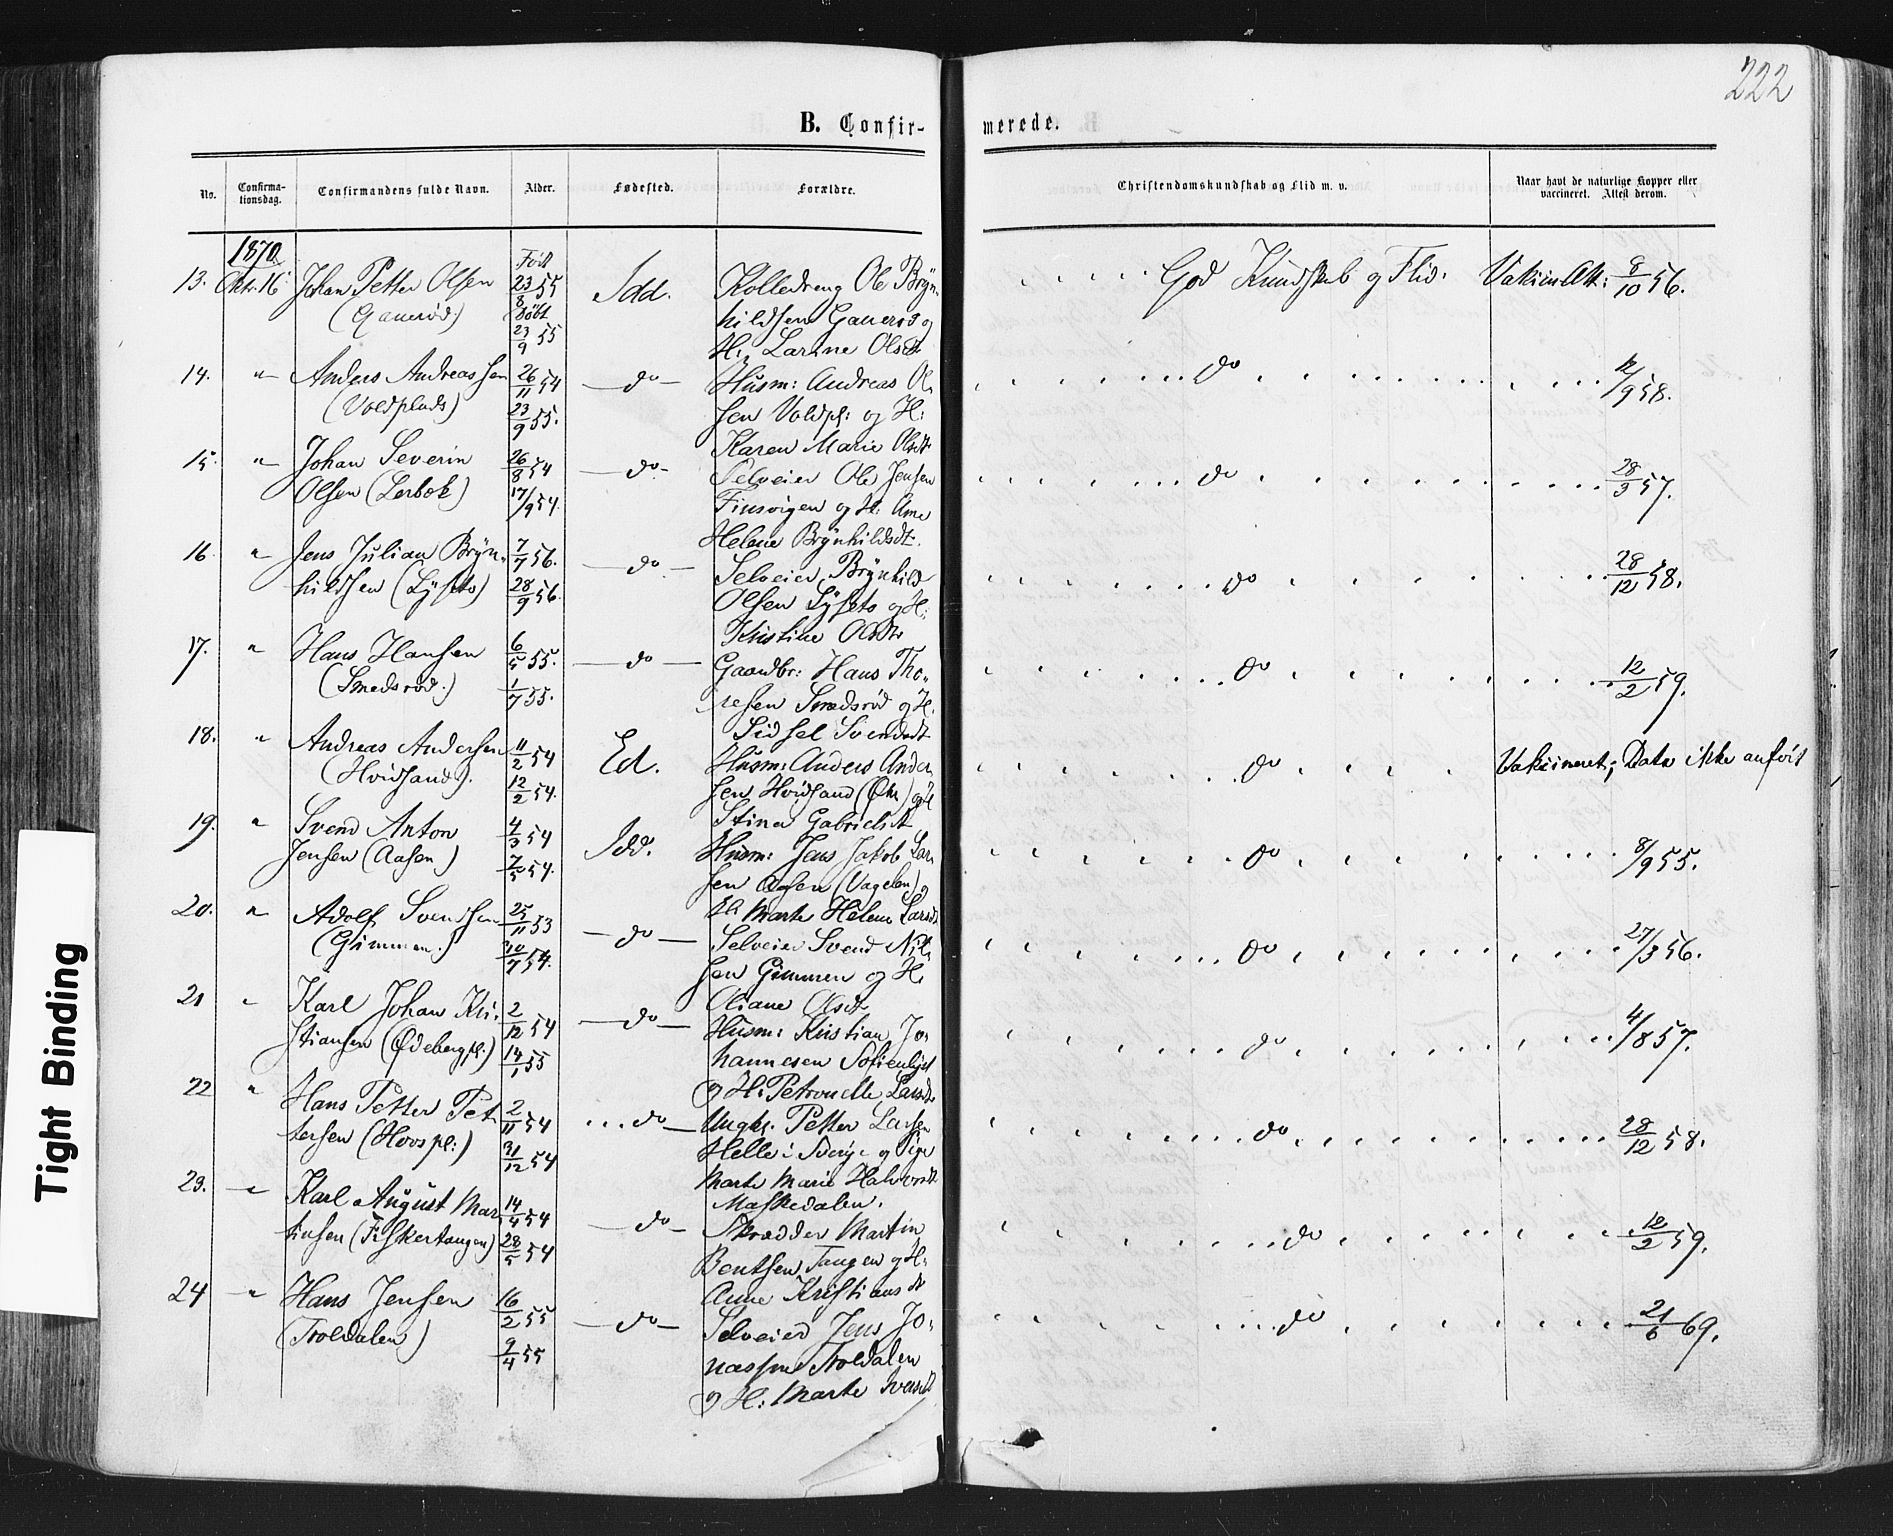 222
B. Confir-
merede.
No.
Confirma-
tionsdag.
Confirmandens fulde Navn.
Alder.
Fødested.
Forældre.
Christendomskundskab og Flid m. v.
Naar havt de naturlige Kopper eller
vaccineret. Attest derom.
1870
Født
13. Oktr. 16 Johan Petter Olsen 23/8 55 Idd. Kolledreng Ole Bryn- God Kundskab og Flid. Vakcin Att: 8/10 56.
(Gauerød) Døbt 23/9 55 hildsen Gauerød og
H: Larine Olsdt
14. " Anders Andreassen 26/11 54 — do — Husm: Andreas Ol- do 12/9 58.
(Voldplads) 23/9 55. sen Voldpl: og H:
Karen Marie Olsdt
15. " Johan Severin 26/8 54 — do - Selveier Ole Jensen do 28/3 57.
Olsen (Lerbok) 17/9 54. Finsvigen og H: Ane
Helene Brynhildsdt.
16. " Jens Julian Bryn- 7/7 56. — do — Selveier Brynhild do 28/12 58.
hildsen (Lysets) 28/9 56. Olsen Lysets og H:
Kristine Olsdtr
17. " Hans Hansen 6/5 55. — do — Gaardbr: Hans Tho- do 12/2 59.
(Smedsrød.) 1/7 55. resen Smedsrød og H.
Sidsel Svendsdt
18. " Andreas Andersen 11/2 54 Ed. Husm: Anders Ander- do Vakcineret; Data ikke anført
(Hvidsand). 12/2 54. sen Hvidsand (Øtn) og H
Stina Gabrielsdt
19. " Svend Anton 4/3 54 Idd. Husm: Jens Jakob Lar- do 8/9 55.
Jensen (Aasen) 7/5 54. sen Aasen (Vagelen) og
H. Marte Helene Larsdt
20. " Adolf Svendsen 25/11 53 — do — Selveier Svend Nil- do 27/3 56.
(Gimmen.) 30/7 54. sen Gimmen og H.
Oliane Olsdt
21 " Karl Johan Kri- 2/12 54 — do — Husm: Kristian Jo- do 4/8 57.
stiansen (Ødebergpl:) 14/1 55 hannesen Sofienlyst
og H: Petronelle Larsdt
22 " Hans Petter Pet- 2/11 54 ... do — Ungk. Petter Larsen do 28/12 58.
tersen (Hovspl:) 31/12 54 Helle i Berg og Pige
Marte Marie Halvorsdt
Maskedalen.
23. " Karl August Mar- 14/4 54 — do — Skrædder Martin do 12/2 59.
tinsen (Fiskertangen) 28/5 54 Bentsen Tangen og H:
Anne Kristiansdt
24 " Hans Jensen 16/2 55 — do — Selveier Jens Jo- do 21/6 69.
(Troldalen) 9/4 55 nassen Troldalen
og H: Marte Iversdt
Tight Binding